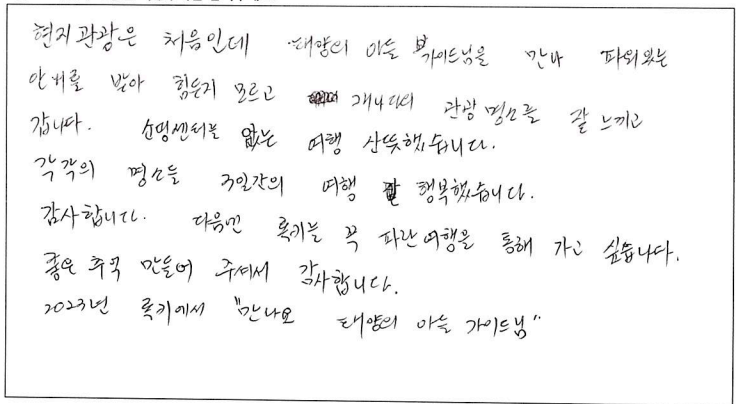 현지관광은 처음인데 태양의 아들 가이드님을 만나 파워있는
안내를 받아 힘든지 모르고 캐나다의 관광 명소를 잘 느끼고
갑니다. 쇼핑센터를 없는 여행 산뜻했습니다.
각각의 명소들 3일간의 여행 행복했습니다.
감사합니다. 다음엔 록키를 꼭 파란여행을 통해 가고 싶습니다.
좋은 추억 만들어 주셔서 감사합니다.
2023년 록키에서 "만나요 태양의 아들 가이드님"